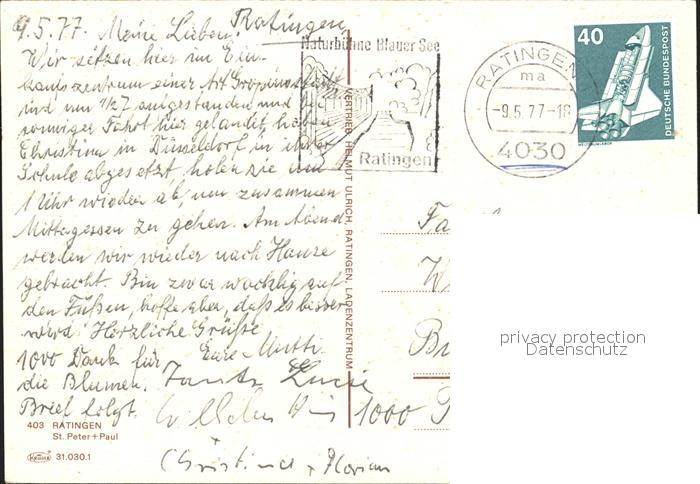 9.5.77. Meine Lieben! Ratingen
Wir sitzen hier im Ein-
kaufszentrum einer Art Gropiusstadt
sind um 1/2 7 aufgestanden und bei
sonniger Fahrt hier gelandet, haben
Christina in Düsseldorf in ihrer
Schule abgesetzt, holen sie um
1 Uhr wieder ab, um zusammen
Mittagessen zu gehen. Am Abend
werden wir wieder nach Hause
gebracht. Bin zwar wacklig auf
den Füßen, hoffe aber, daß es besser
wird! Herzliche Grüße
1000 Dank für Eure Mutti
die Blumen. Tante
Brief folgt.
Christina + Florian
403 RATINGEN
St. Peter+Paul
Krüger 31.030.1
Naturbühne Blauer See
Ratingen
VERTRIEB: HELMUT ULRICH, RATINGEN, LADENZENTRUM
RATINGEN
ma
-9.5.77-18
4030
40
DEUTSCHE BUNDESPOST
WELTRAUMLABOR
Fa
W
B
1000
privacy protection
Datenschutz